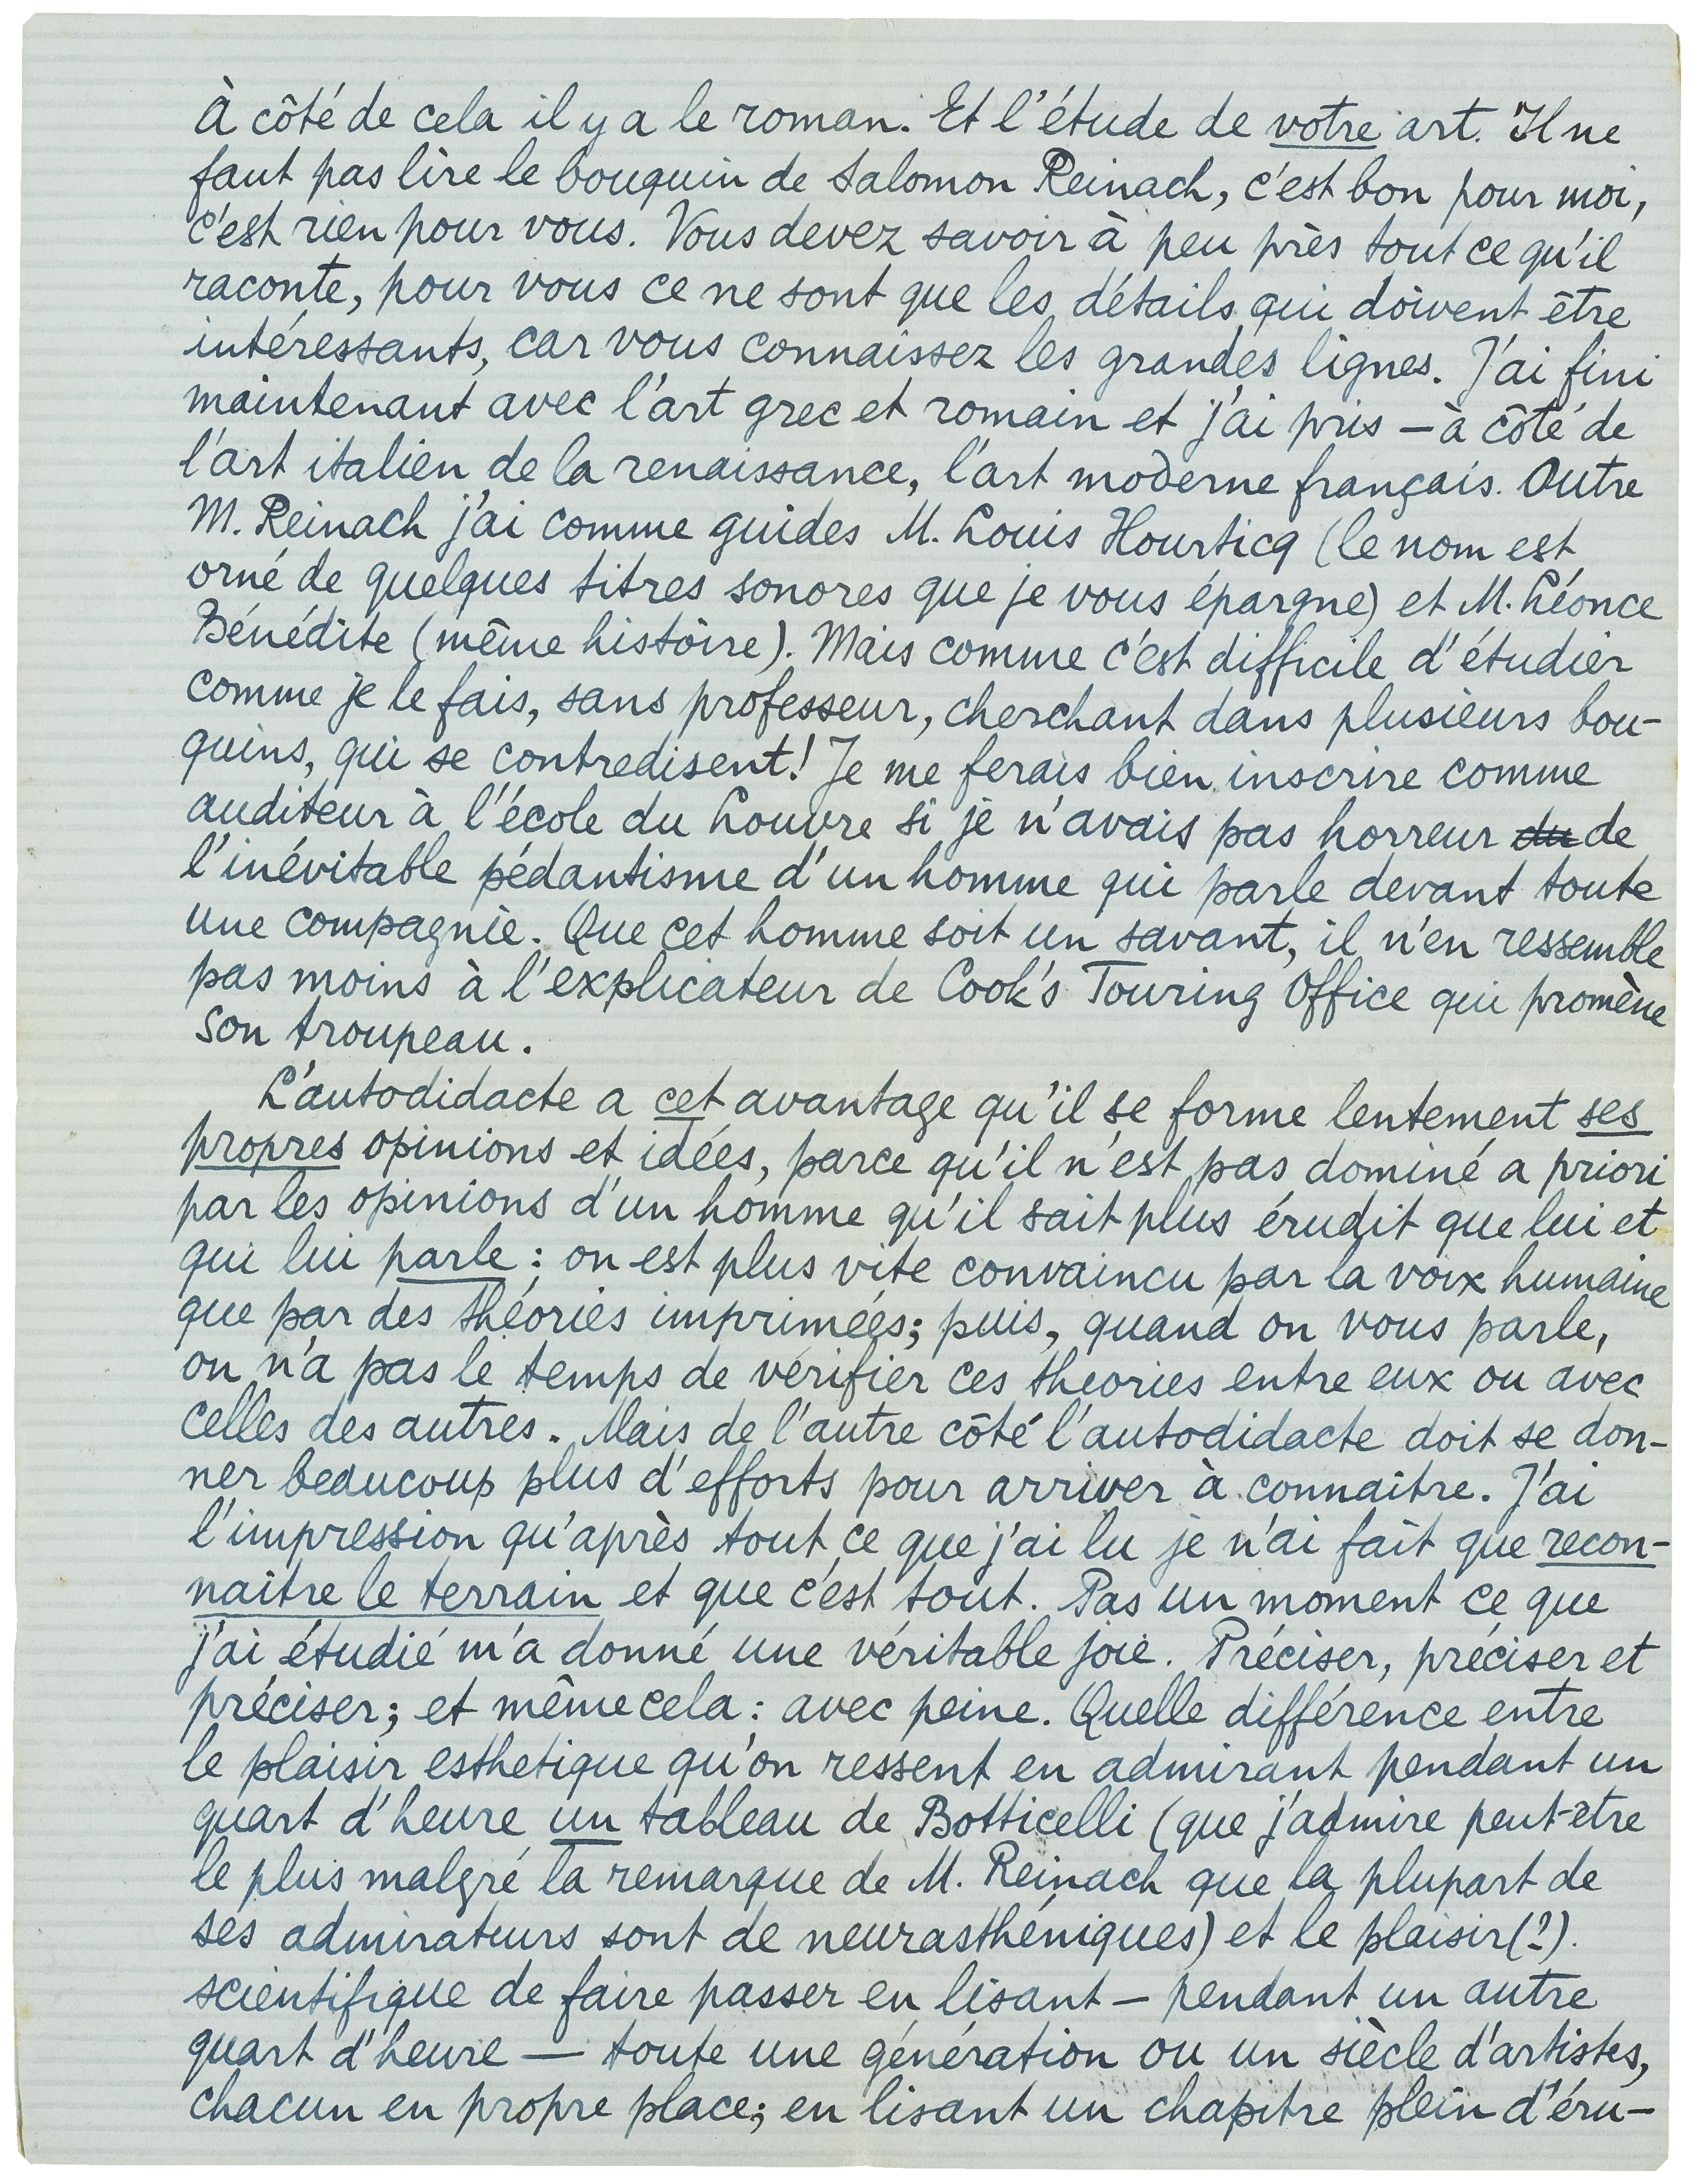 À côté de cela il y a le roman. Et l'étude de votre art. Il ne
faut pas lire le bouquin de Salomon Reinach, c'est bon pour moi,
c'est rien pour vous. Vous devez savoir à peu près tout ce qu'il
raconte, pour vous ce ne sont que les détails qui doivent être
intéressants, car vous connaissez les grandes lignes. J'ai fini
maintenant avec l'art grec et romain et j'ai pris – à côté de
l'art italien de la renaissance, l'art moderne français. Outre
M. Reinach j'ai comme guides M. Louis Hourticq (le nom est
orné de quelques titres sonores que je vous épargne) et M. Léonce
Bénédite (même histoire). Mais comme c'est difficile d'étudier
comme je le fais, sans professeur, cherchant dans plusieurs bou-
quins, qui se contredisent! Je me ferais bien inscrire comme
auditeur à l'école du Louvre si je n'avais pas horreur du de
l'inévitable pédantisme d'un homme qui parle devant toute
une compagnie. Que cet homme soit un savant, il n'en ressemble
pas moins à l'explicateur de Cook's Touring Office qui promène
son troupeau.
L'autodidacte a cet avantage qu'il se forme lentement ses
propres opinions et idées, parce qu'il n'est pas dominé a priori
par les opinions d'un homme qu'il sait plus érudit que lui et
qui lui parle : on est plus vite convaincu par la voix humaine
que par des théories imprimées; puis, quand on vous parle,
on n'a pas le temps de vérifier ces theories entre eux ou avec
celles des autres. Mais de l'autre côté l'autodidacte doit se don-
ner beaucoup plus d'efforts pour arriver à connaître. J'ai
l'impression qu'après tout ce que j'ai lu je n'ai fait que recon-
naître le terrain et que c'est tout. Pas un moment ce que
j'ai étudié m'a donné une véritable joie. Préciser, préciser et
préciser; et même cela : avec peine. Quelle différence entre
le plaisir esthetique qu'on ressent en admirant pendant un
quart d'heure un tableau de Botticelli (que j'admire peut-être
le plus malgré la remarque de M. Reinach que la plupart de
ses admirateurs sont de neurasthéniques) et le plaisir(?).
scientifique de faire passer en lisant – pendant un autre
quart d'heure — toute une génération ou un siècle d'artistes,
chacun en propre place; en lisant un chapitre plein d'éru-